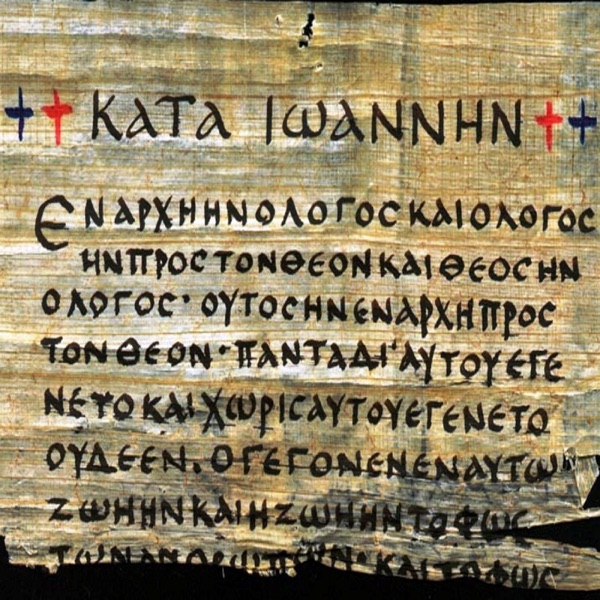 ΚΑΤΑ ΙΩΑΝΝΗΝ
ΕΝΑΡΧΗΗΝΟΛΟΓΟCΚΑΙΟΛΟΓΟC
ΗΝΠΡΟCΤΟΝΘΕΟΝΚΑΙΘΕΟCΗΝ
ΟΛΟΓΟC· ΟΥΤΟCΗΝΕΝΑΡΧΗΠΡΟC
ΤΟΝΘΕΟΝ·ΠΑΝΤΑΔΙ'ΑΥΤΟΥΕΓΕ
ΝΕΤΟΚΑΙΧΩΡΙCΑΥΤΟΥΕΓΕΝΕΤΟ
ΟΥΔΕΕΝ. ΟΓΕΓΟΝΕΝΕΝΑΥΤΩ
ΖΩΗΗΝΚΑΙΗΖΩΗΗΝΤΟΦΩC
ΤΩΝΑΝΘΡΩΠΩΝ·ΚΑΙΤΟΦΩC